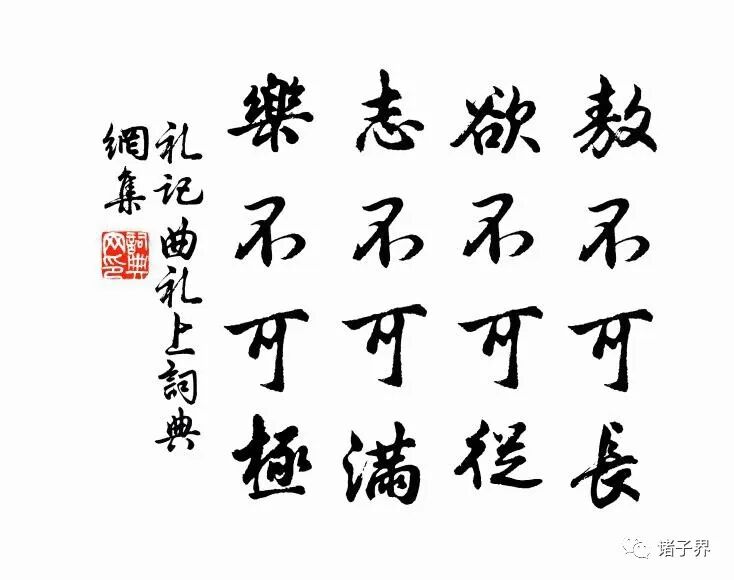 敖不可長
欲不可從
志不可滿
樂不可極
礼记曲礼上詞典
網集
詞典
网印
诸子界